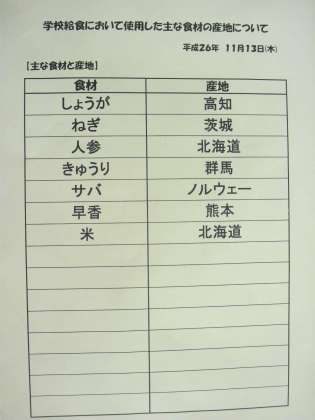 学校給食において使用した主な食材の産地について
平成26年 11月13日(木)
【主な食材と産地】
食材 産地
しょうが 高知
ねぎ 茨城
人参 北海道
きゅうり 群馬
サバ ノルウェー
早香 熊本
米 北海道